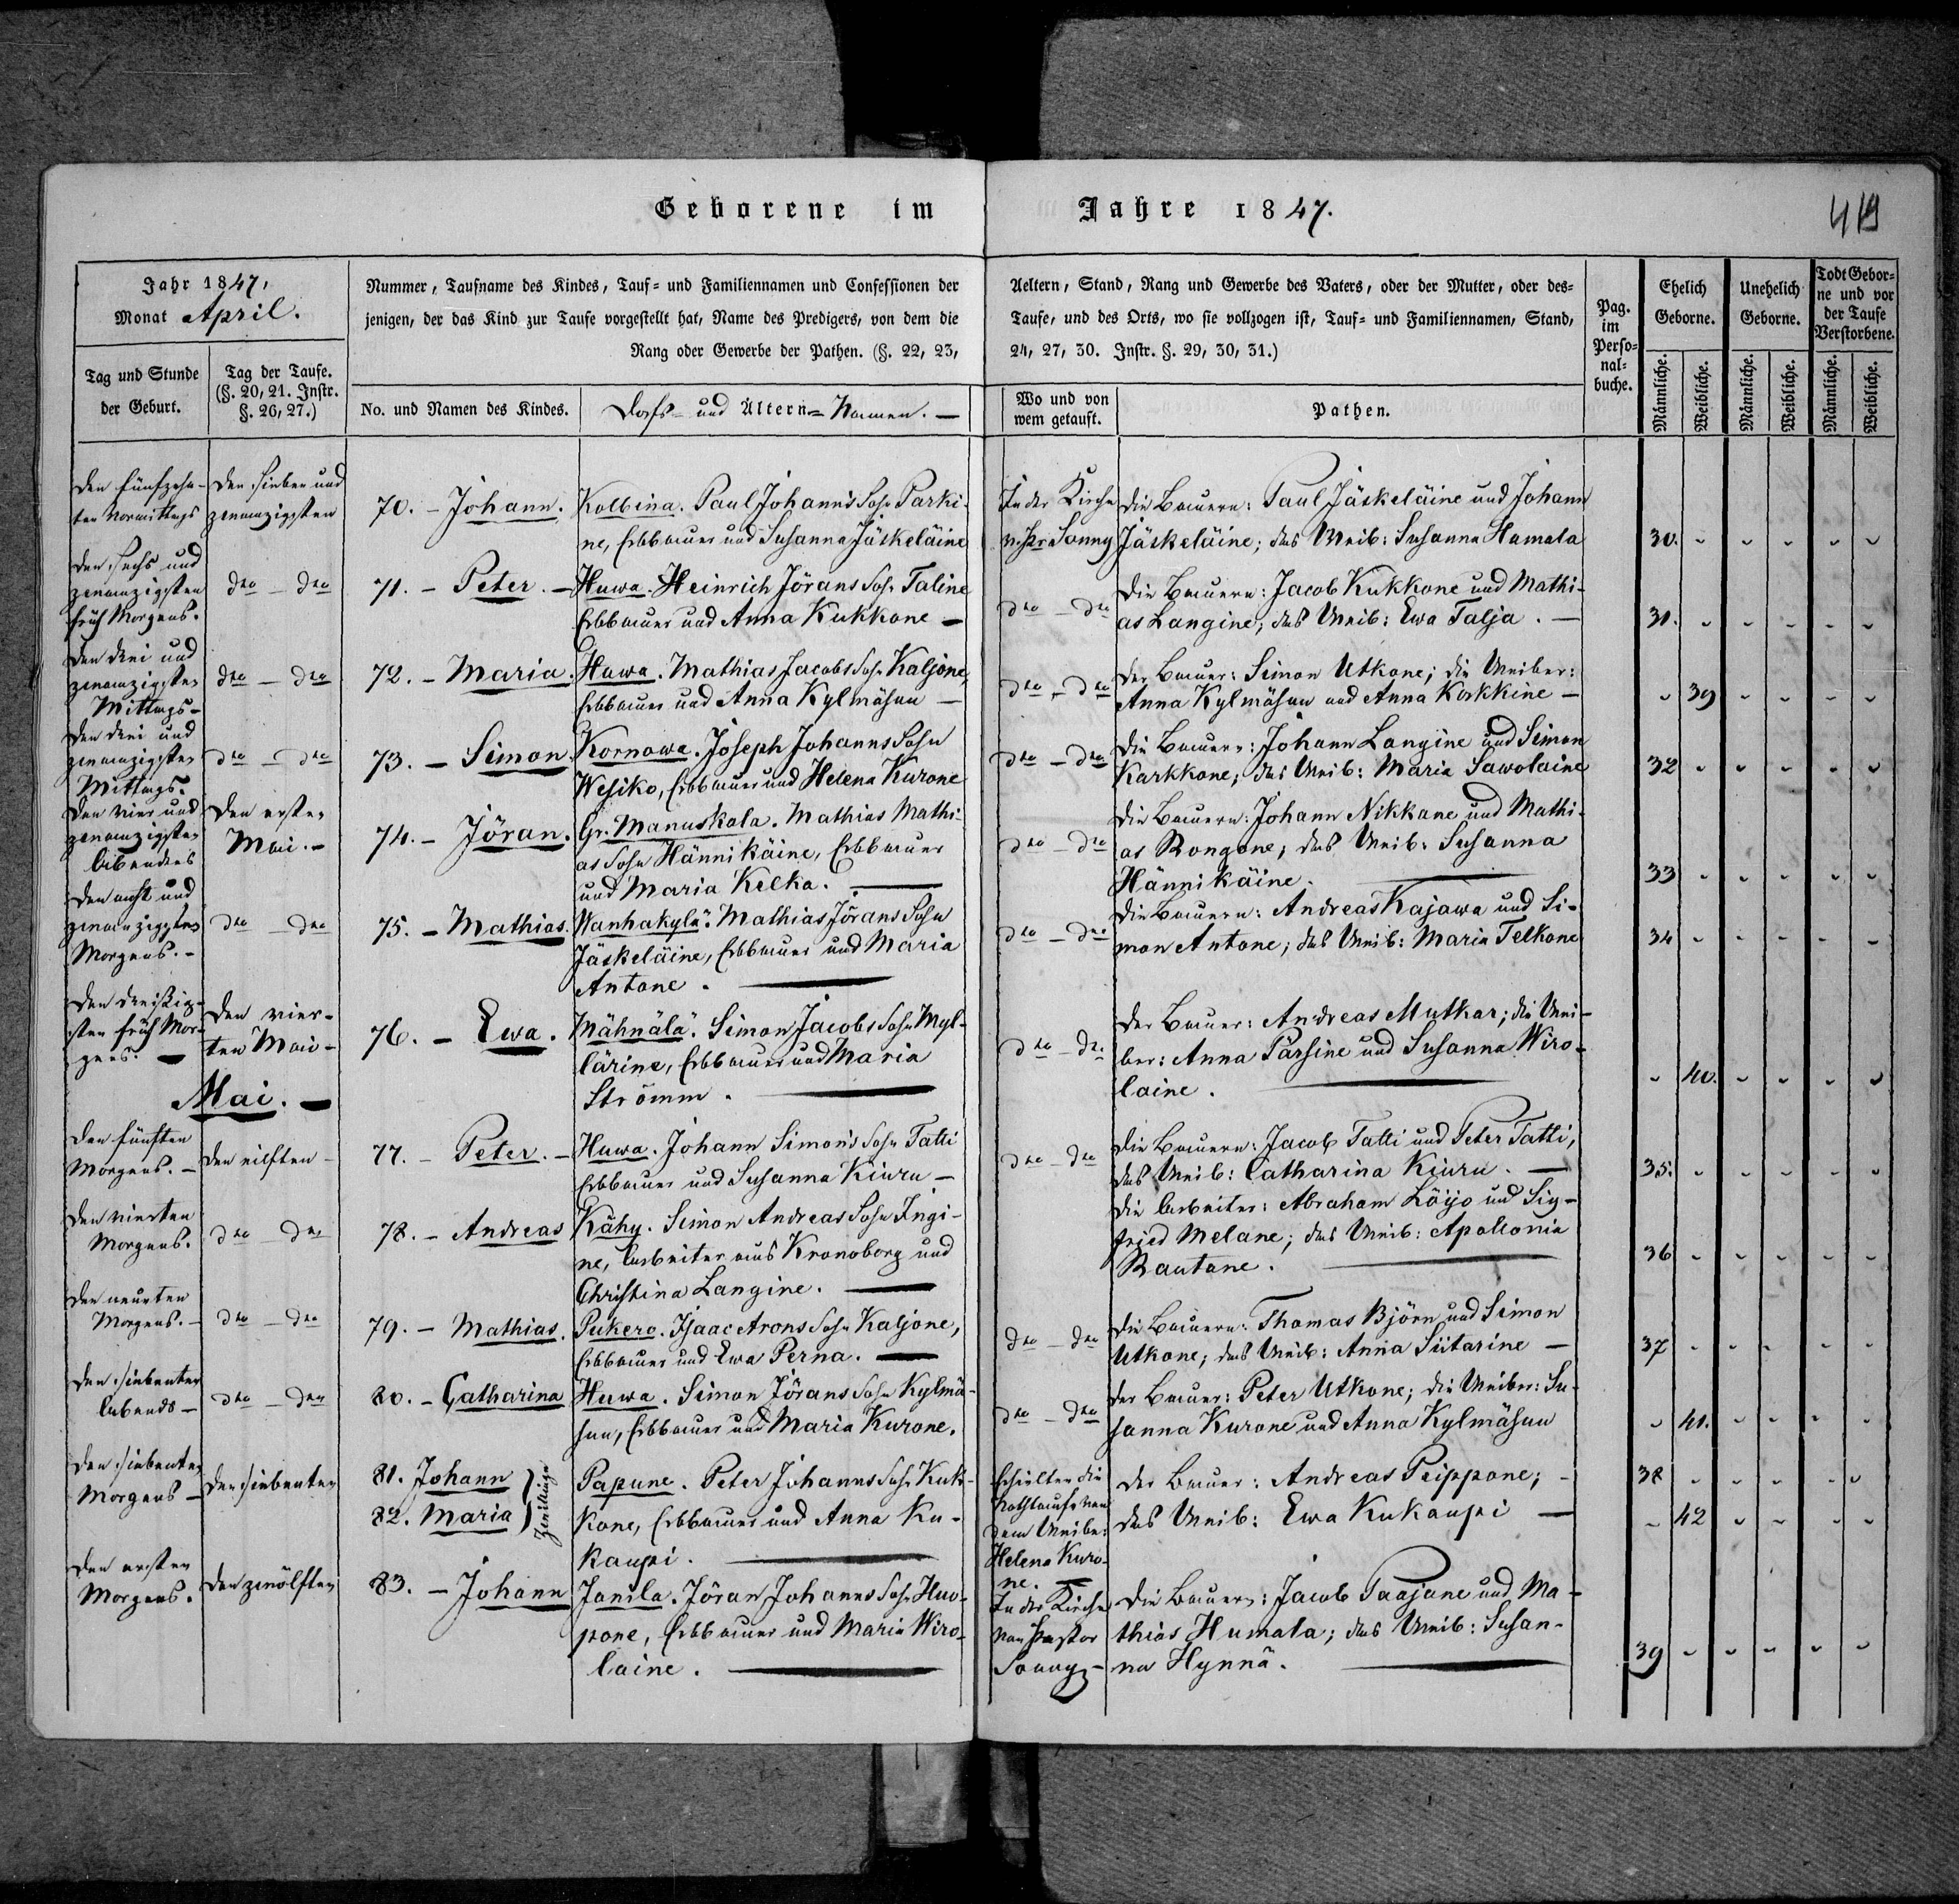 Geborene im Jahre 1847.
419
Jahr 1847,
Monat April.
Nummer, Taufname des Kindes, Tauf- und Familiennamen und Confessionen der
jenigen, der das Kind zur Taufe vorgestellt hat, Name des Predigers, von dem die
Rang oder Gewerbe der Pathen. (§. 22, 23,
Aeltern, Stand, Rang und Gewerbe des Vaters, oder der Mutter, oder des-
Taufe, und des Orts, wo sie vollzogen ist, Tauf- und Familiennamen, Stand,
24, 27, 30. Instr. §. 29, 30, 31.)
Pag.
im
Perso-
nal-
buche.
Ehelich
Geborne.
Unehelich
Geborne.
Todt Gebor-
ne und vor
der Taufe
Verstorbene.
Männliche.
Weibliche.
Männliche.
Weibliche.
Männliche.
Weibliche.
Tag und Stunde
der Geburt.
Tag der Taufe.
(§. 20, 21. Instr.
§. 26, 27.)
No. und Namen des Kindes.
Dorfs- und Ältern-Namen. —
Wo und von
wem getauft.
Pathen.
Den fünfzehn-
ten Vormittags
Den sieben und
zwanzigsten
70. - Johann.
Kolbina. Paul Johann's Sohn Parki-
ne, Erbbauer und Susanna Jäskeläine
In der Kirche
v. Pr. Sonny
Die Bauern: Paul Jäskeläine und Johann
Jäskeläine; das Weib: Susanna Hamala
30.
Den sechs und
zwanzigsten
früh Morgens.
dto - dto
71. - Peter. -
Huwa. Heinrich Jörans Sohn Taline
Erbbauer und Anna Kukkone —
dto - dto
Die Bauern: Jacob Kukkone und Mathi-
as Langine; das Weib: Ewa Talja. —
31.
Den drei und
zwanzigsten
Mittags -
dto - dto
72. - Maria.
Huwa. Mathias Jacobs Sohn Kaljone,
Erbbauer und Anna Kylmäsuu —
dto - dto
Der Bauer: Simon Utkone; die Weiber:
Anna Kylmäsuu und Anna Korkkine —
39
Den drei und
zwanzigsten
Mittags.
dto - dto
73. - Simon.
Kornowa. Joseph Johanns Sohn
Wesiko, Erbbauer und Helena Kurone
dto - dto
Die Bauern: Johann Langine und Simon
Karkkone; das Weib: Maria Sawolaine
32
Den vier und
zwanzigsten
Abends
Den ersten
Mai. -
74. - Jöran.
Gr. Manuskala. Mathias Mathi-
as Sohn Hännikäine, Erbbauer
und Maria Kelka. —
dto - dto
Die Bauern: Johann Nikkane und Mathi-
as Rongone; das Weib: Susanna
Hännikäine. —
33
Den acht und
zwanzigsten
Morgens. -
dto - dto
75. - Mathias.
Wanhakylä. Mathias Jörans Sohn
Jäskeläine, Erbbauer und Maria
Antone. —
dto - dto
Die Bauern: Andreas Kajawa und Si-
mon Antone; das Weib: Maria Telkone
34
Den dreissig-
sten früh Mor-
gens. —
Den vier-
ten Mai -
76. - Ewa.
Mähnälä. Simon Jacobs Sohn Myl-
lärine, Erbbauer und Maria
Strömm. —
dto - dto
Der Bauer: Andreas Mutkar; die Wei-
ber: Anna Parsine und Susanna Wiro-
laine. —
40.
Mai. —
Den fünften
Morgens. -
Den eilften -
77. - Peter. -
Huwa. Johann Simon's Sohn Tatti
Erbbauer und Susanna Kiuru -
dto - dto
Die Bauern: Jacob Talli und Peter Tatti,
das Weib: Catharina Kiuru. —
35.
Den vierten
Morgens.
dto - dto
78. - Andreas
Kähy. Simon Andreas Sohn Ingi-
ne, Arbeiter aus Kronoborg und
Christina Langine. —
Die Arbeiter: Abraham Löijo und Sig-
fried Melane; das Weib: Apollonia
Rautane. —
36
Den neunten
Morgens. -
dto - dto
79. - Mathias.
Pukero. Isaac Arons Sohn Kaljone,
Erbbauer und Ewa Perna. —
dto - dto
Die Bauern: Thomas Björn und Simon
Utkone; das Weib: Anna Siitarine —
37
Den siebenten
Abends -
dto - dto
80. - Catharina
Huwa. Simon Jörans Sohn Kylmä-
suu, Erbbauer und Maria Kurone.
dto - dto
Der Bauer: Peter Utkone; die Weiber: Su-
sanna Kurone und Anna Kylmäsuu
41.
Den siebenten
Morgens -
Den siebenten
81. Johann
82. Maria
Zwillinge
Papune. Peter Johanns Sohn Kuk-
kone, Erbbauer und Anna Ku-
kaupi. —
Erhielten die
Nothtaufe von
dem Weibe:
Helena Kuro-
ne. —
Der Bauer: Andreas Peippone; -
das Weib: Ewa Kukaupi —
38
42
Den ersten
Morgens.
Den zwölften
83. - Johann
Janila. Jöran Johanns Sohn Huo-
pone, Erbbauer und Maria Wiro-
laine. —
In der Kirche
von Pastor
Sonny -
Die Bauern: Jacob Paajane und Ma-
thias Humala; das Weib: Susan-
na Hynnä. —
39